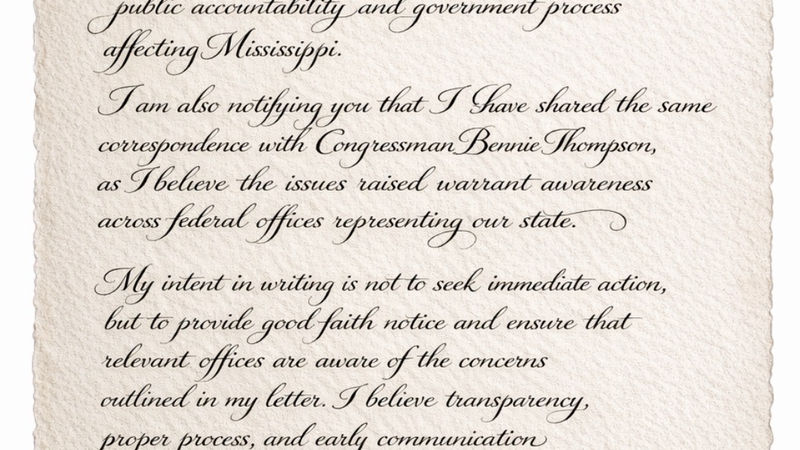 public accountability and government process
affecting Mississippi.
I am also notifying you that I have shared the same
correspondence with Congressman Bennie Thompson,
as I believe the issues raised warrant awareness
across federal offices representing our state.
My intent in writing is not to seek immediate action,
but to provide good faith notice and ensure that
relevant offices are aware of the concerns
outlined in my letter. I believe transparency,
proper process, and early communication